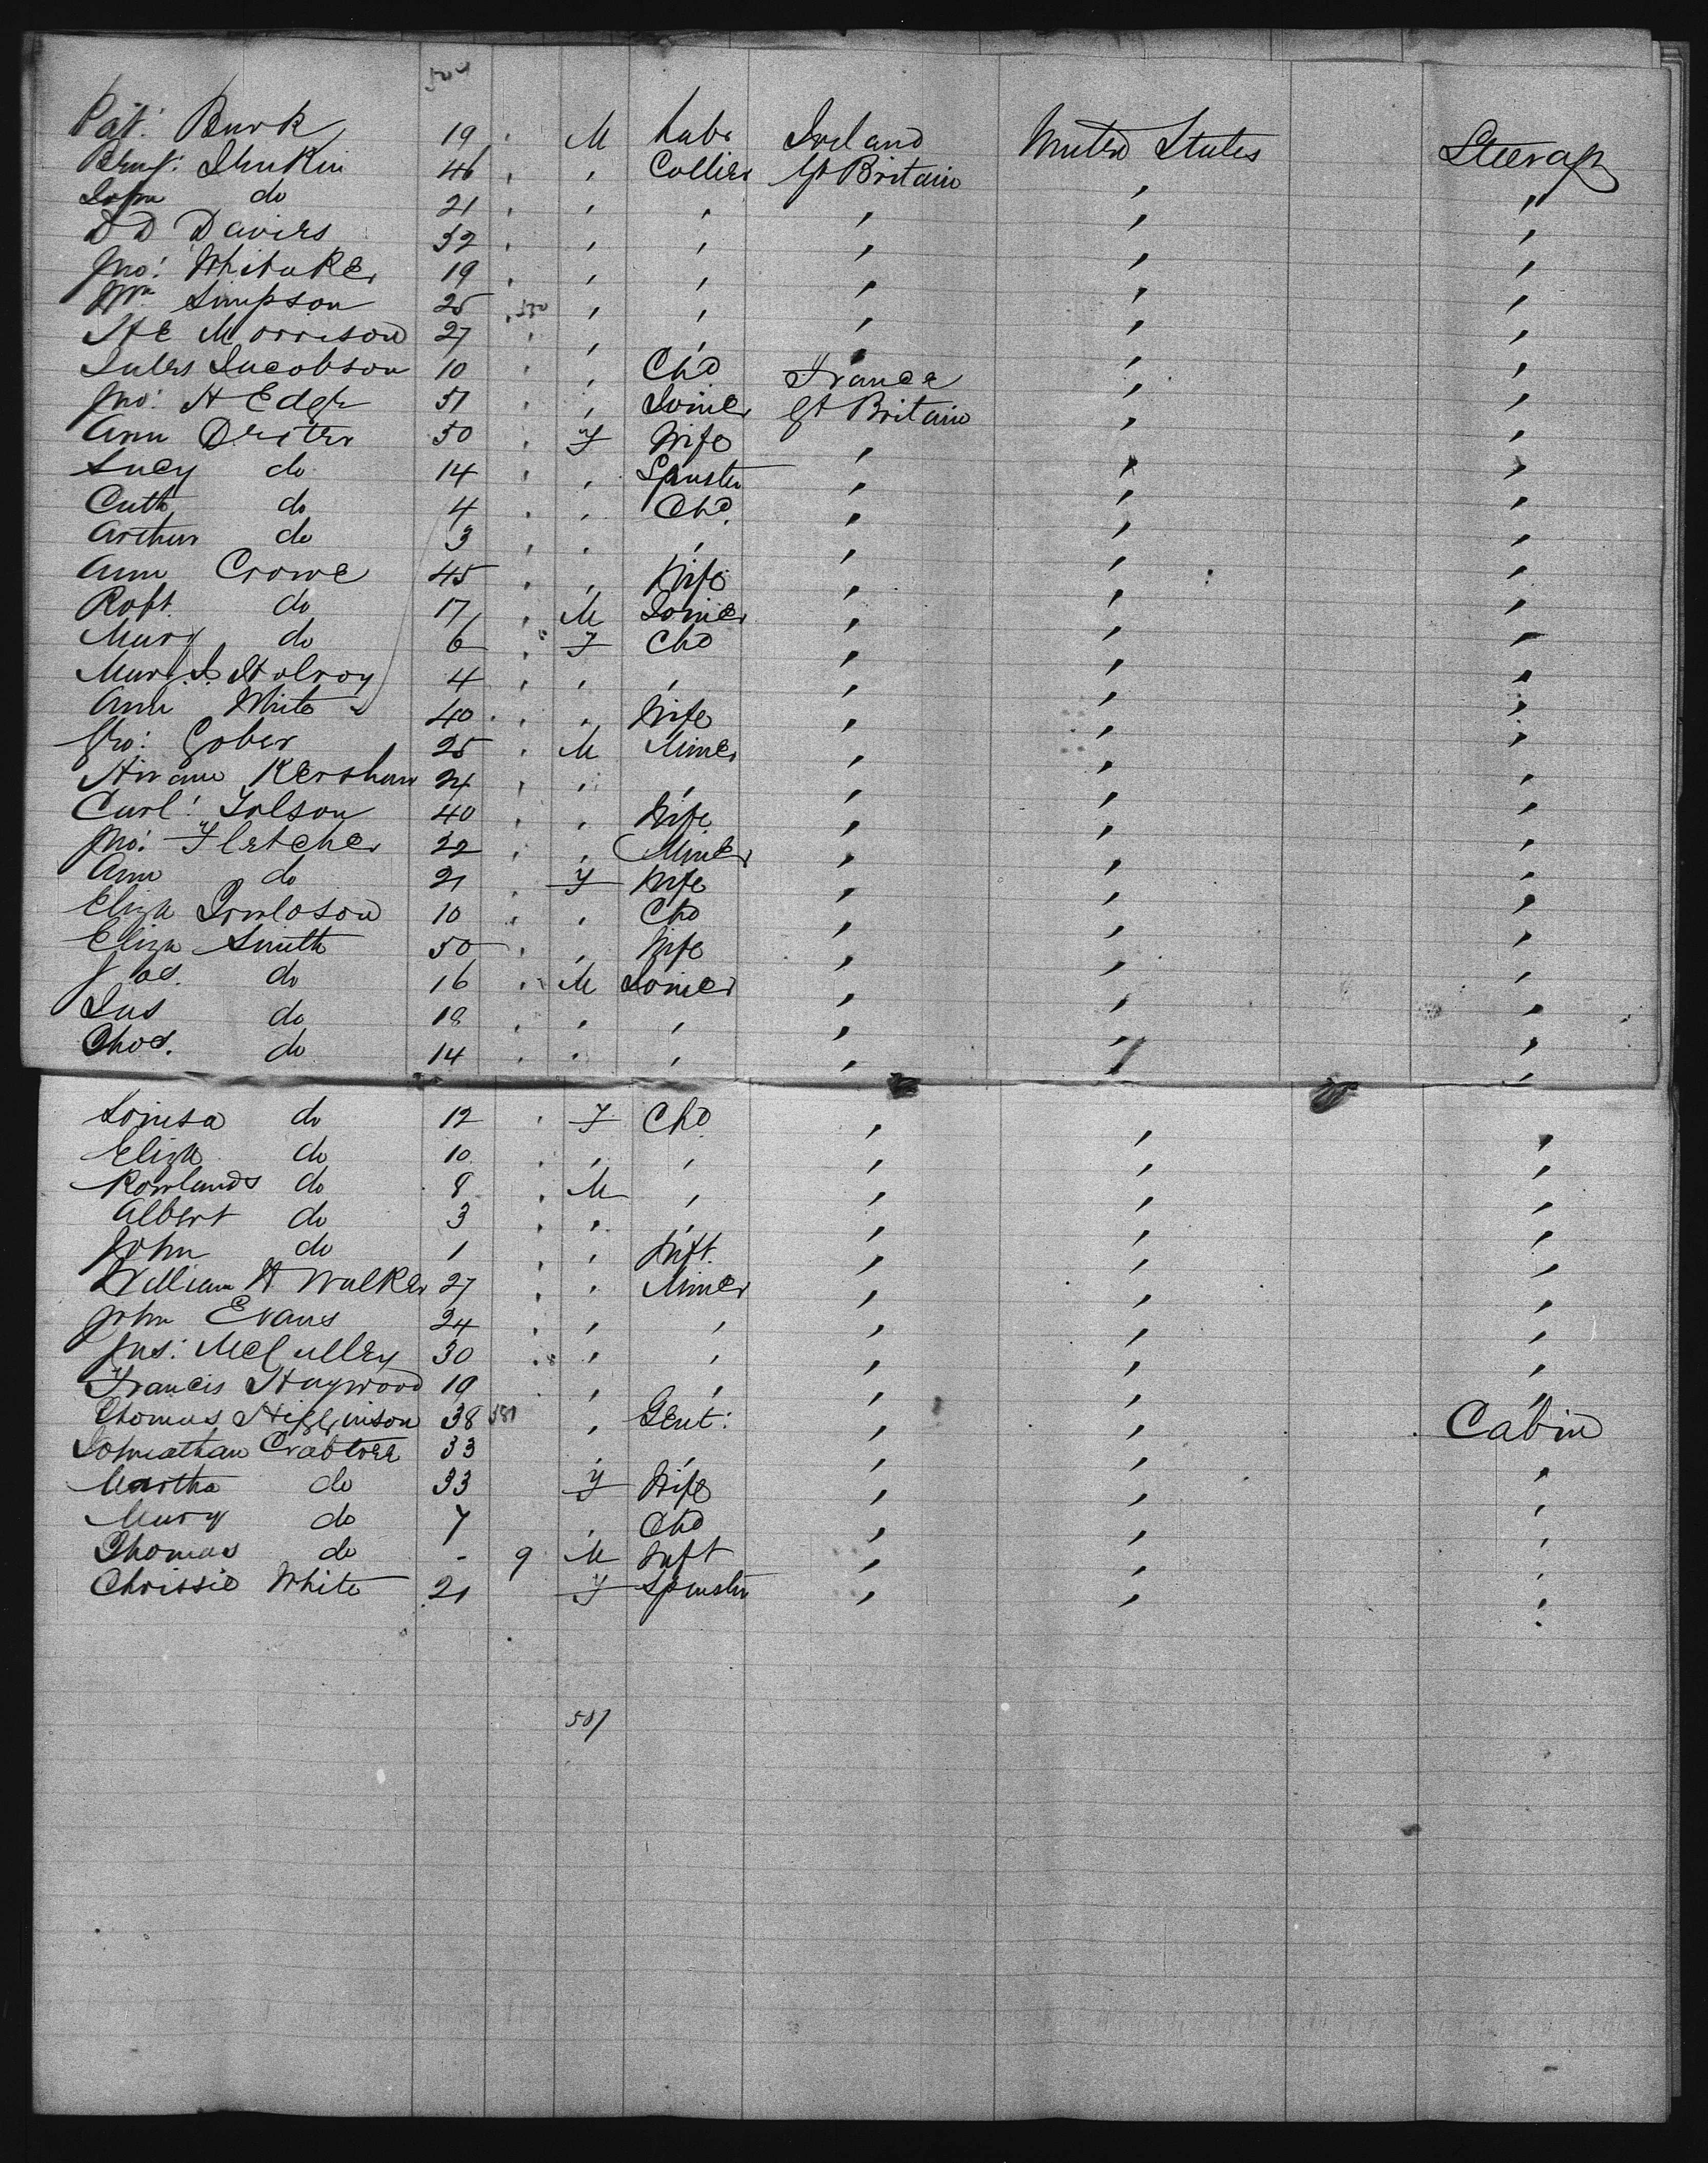 Pat: Burk 19 " M Labr Ireland United States Steerage
Benj: Jenkin 46 " " Collier Gt Britain " "
John do 21 " " " " " "
D D Davies 32 " " " " " "
Jno: Whitaker 19 " " " " " "
Wm Simpson 25 " " " " " "
H E Morrison 27 " " " " " "
Jules Jacobson 10 " " Chd France " "
Jno: H Edge 51 " " Joiner Gt Britain " "
Ann 50 " F Wife " " "
Lucy do 14 " " Spinster " " "
Cath do 4 " " Chd " " "
Arthur do 3 " " " " " "
Ann Crowe 45 " " Wife " " "
Robt. do 17 " M Joiner " " "
Mary do 6 " F Chd " " "
Mary J. Holroy 4 " " " " " "
Ann White 40 " " Wife " " "
Geo: Gober 25 " M Miner " " "
Hiram Kershaw 24 " " " " " "
Carl: Tolson 40 " " Wife " " "
Jno: Fletcher 22 " " Miner " " "
Ann do 21 " F Wife " " "
Eliza 10 " " Chd " " "
Eliza Smith 50 " " Wife " " "
Jos. do 16 " M Joiner " " "
Jas do 18 " " " " " "
Thos. do 14 " " " " " "
Louisa do 12 " F Chd " " "
Eliza do 10 " " " " " "
Rowlands do 8 " M " " " "
Albert do 3 " " " " " "
John do 1 " " Inft. " " "
William H Walker 27 " " Miner " " "
John Evans 24 " " " " " "
Jas: McCulley 30 " " " " " "
Francis Haywood 19 " " " " " "
Thomas Higginson 38 " Gent: " " Cabin
Johnathan Crabtree 33 " " " " "
Martha do 33 F Wife " " "
Mary do 7 " Chd " " "
Thomas do - 9 M Inft " " "
Chrissie White 21 F Spinster " " "
587